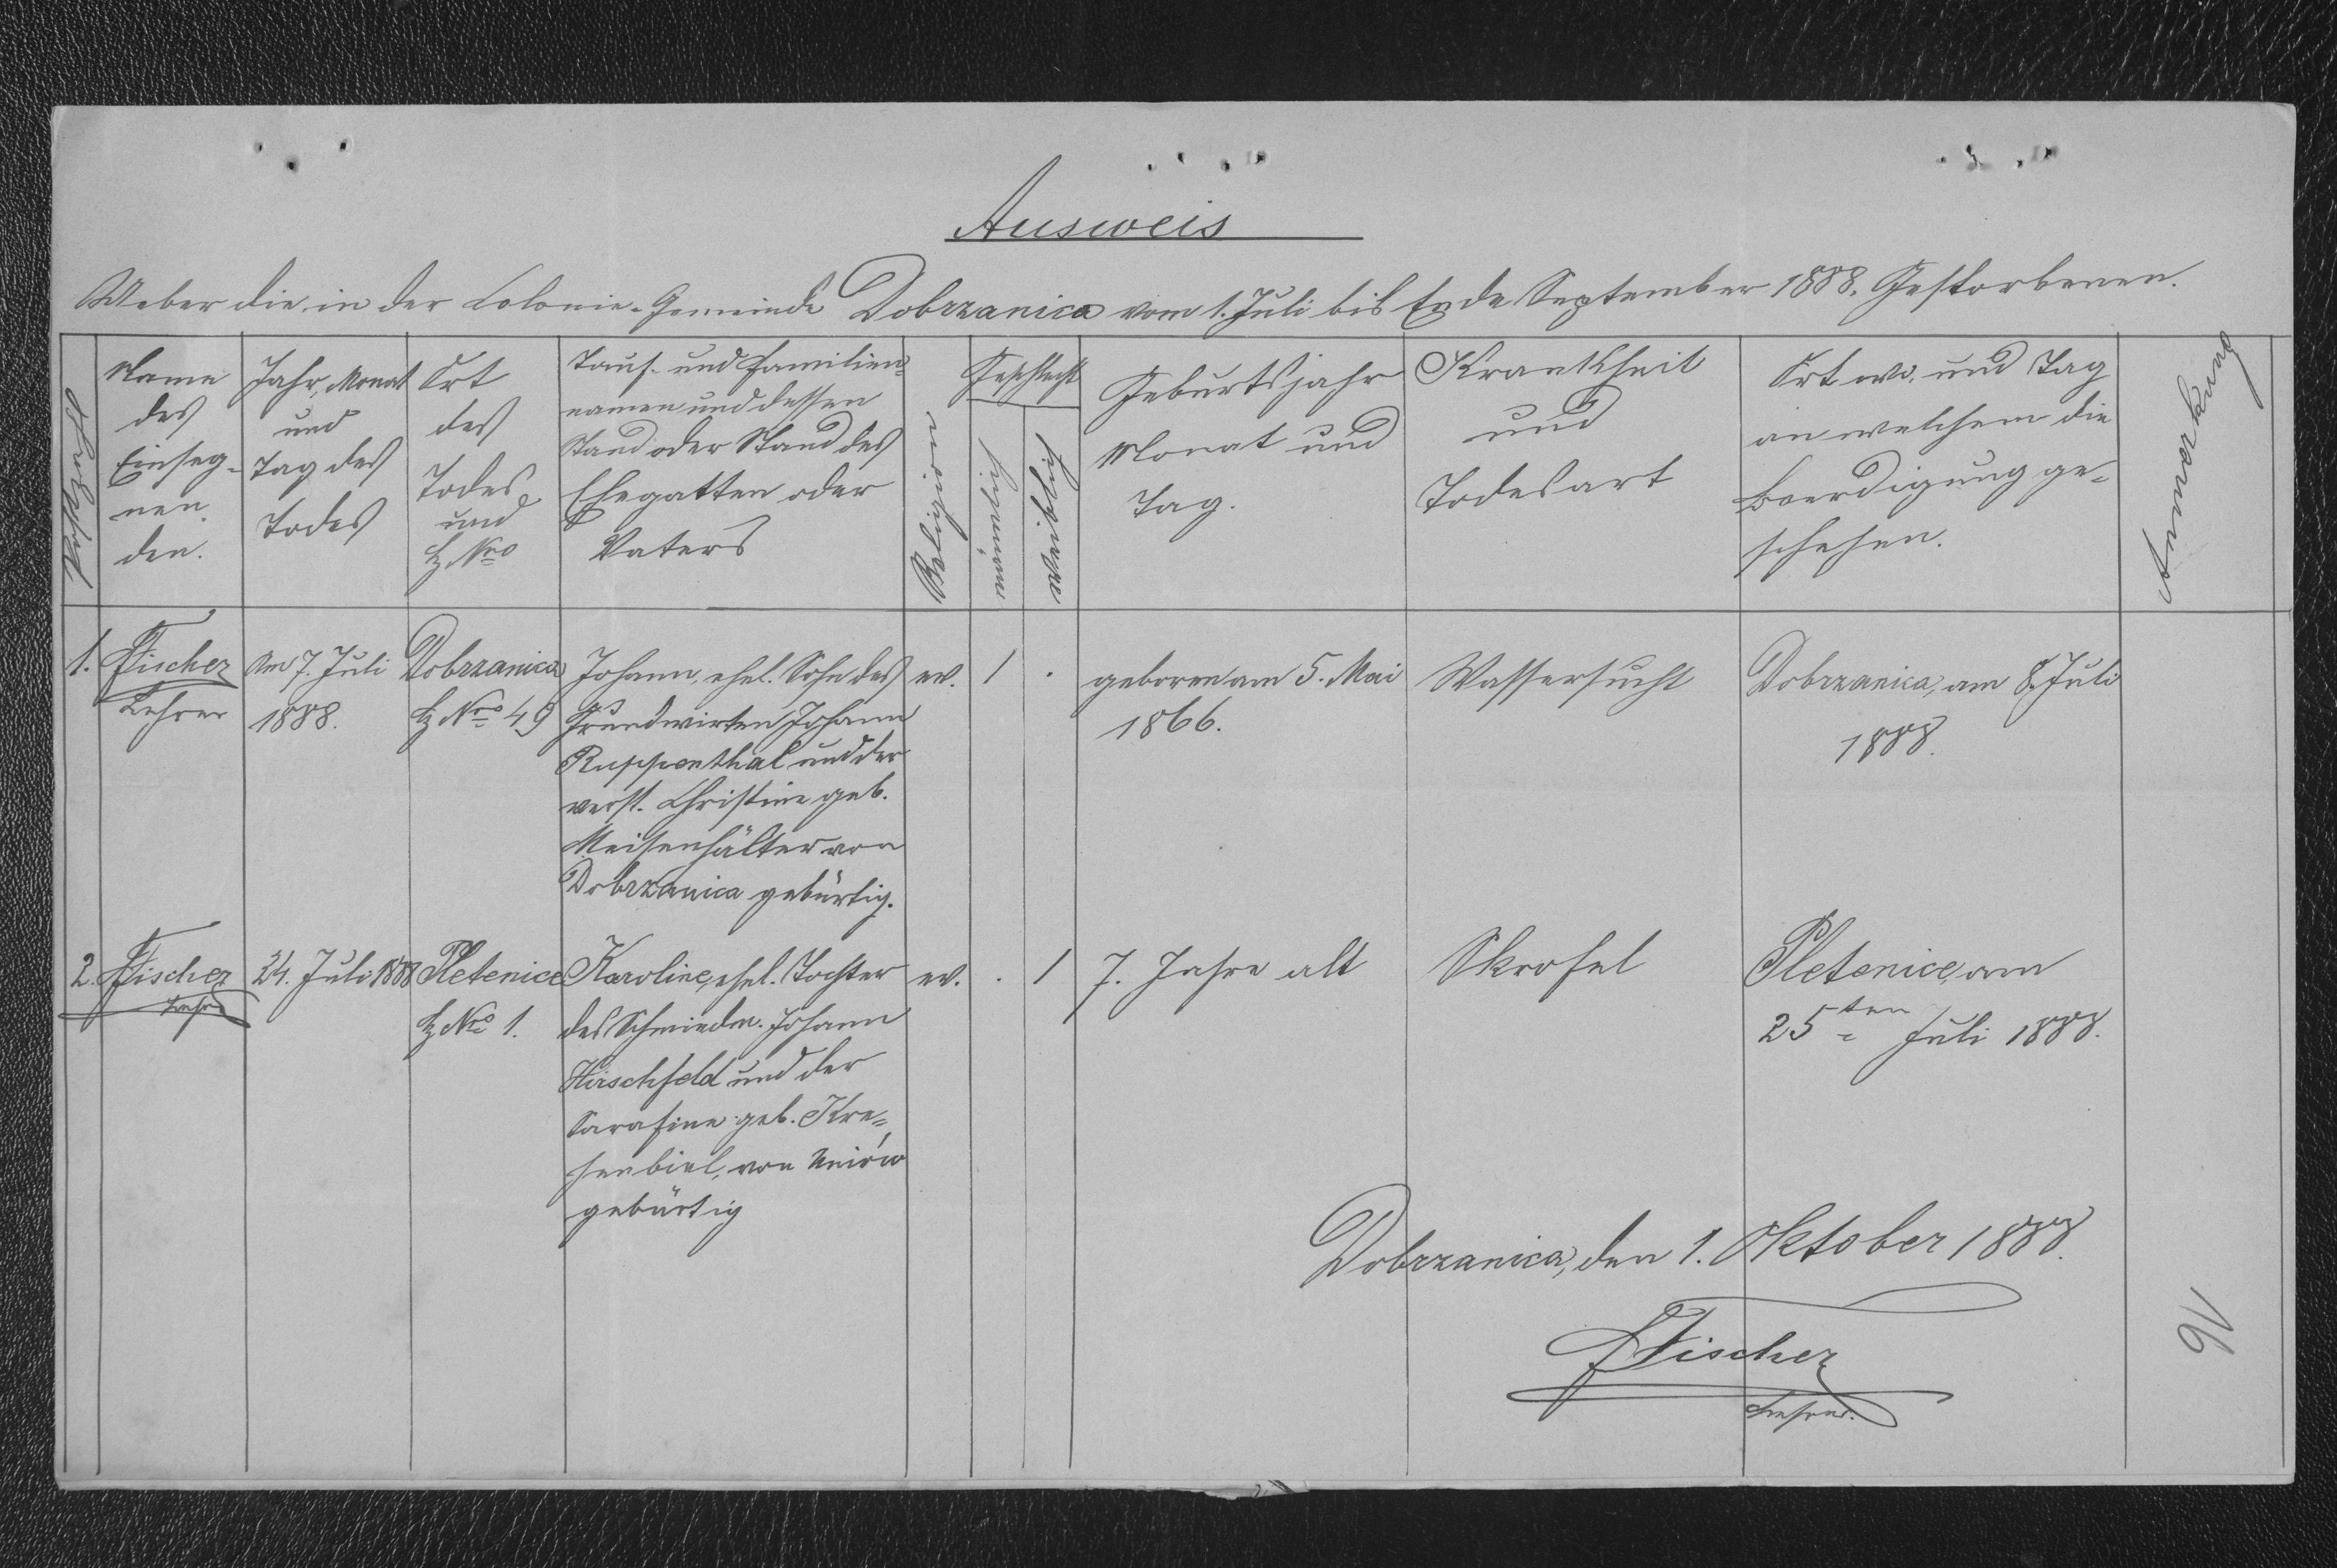 Ausweis
Ueber die in der Colonie-Gemeinde Dobrzanica vom 1. Juli bis Ende September 1888. Gestorbenen.
Name
des
Einseg-
nen
den.
Jahr, Monat
und
Tag des
Todes
Ort
des
Todes
und
H Nro
Tauf- und Familien-
namen und dessen
Stand oder Stand des
Ehegatten oder
Vaters
Religion
Geschlecht
männlich
weiblich
Geburtsjahr
Monat und
Tag.
Krankheit
und
Todesart
Ort wo, und Tag
an welchem die
Beerdigung ge-
schehen.
Anmerkung
1.
Fischer
Lehrer
Am 7. Juli
1888.
Dobrzanica
H Nro 49
Johann, ehel. Sohn des
Grundwirten Johann
Ruppenthal und der
verst. Christine geb.
Meisenhälter von
Dobrzanica gebürtig.
ev.
1
.
geboren am 5. Mai
1866.
Wassersucht
Dobrzanica, am 8. Juli
1888.
2.
Fischer
Lehrer
24. Juli 1888
Pletenice
H Nro 1.
Karoline, ehel. Tochter
des Schmiedm. Johann
Hirschfeld und der
Sarafine geb. Kre-
henbiel, von Uniów
gebürtig
ev.
.
1
7. Jahre alt
Skrofel
Pletenice, am
25ten Juli 1888.
Dobrzanica, den 1. Oktober 1888.
Fischer
Lehrer.
16